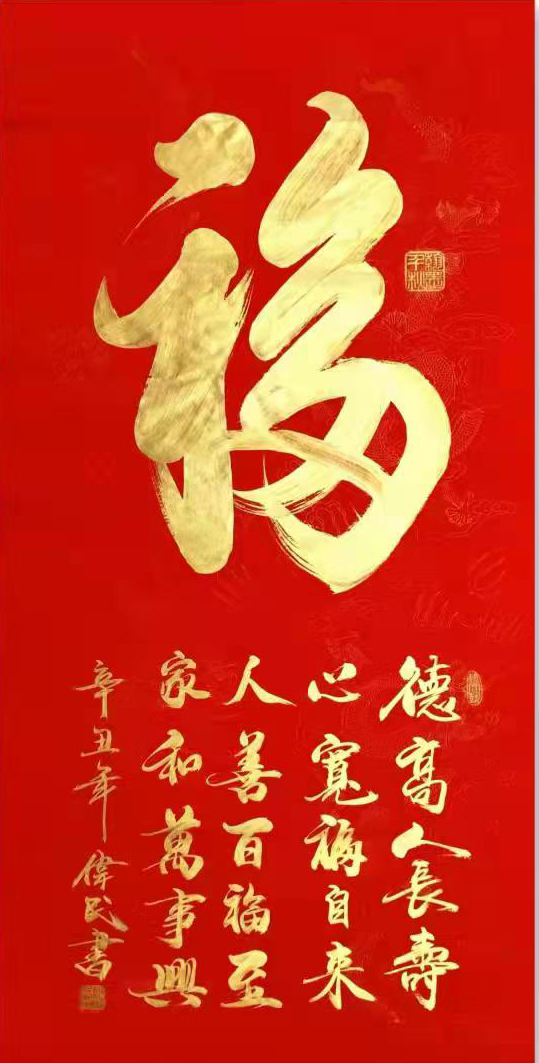 福
德高人長壽
心寬福自来
人善百福至
家和萬事興
辛丑年 偉民書